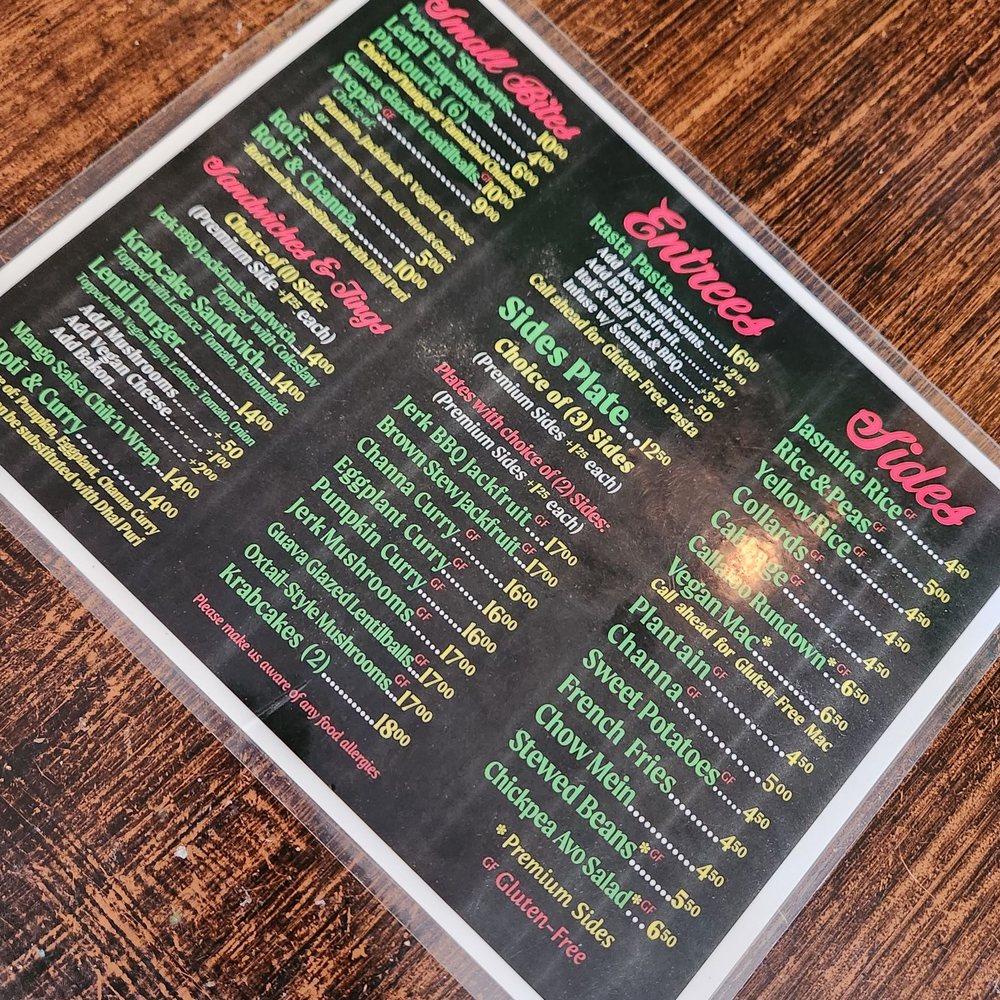 Small Bites
Popcorn Shrooms 10⁰⁰
Lentil Empenada 4⁰⁰
Pholourie (6) 6⁰⁰
Choice of Mango or Tamarind Chutney
Guava Glazed Lentilballs GF 10⁰⁰
Arepas GF 9⁰⁰
Choice of:
Roti 5⁰⁰
Roti & Channa 10⁰⁰
Sandwiches & Tings
Choice of (1) Side
(Premium Side +1²⁵ each)
Jerk BBQ Jackfruit Sandwich 14⁰⁰
Topped with Coleslaw
Krabcake Sandwich 14⁰⁰
Topped with Lettuce, Tomato, Remoulade
Lentil Burger 14⁰⁰
Topped with Vegan Mayo, Lettuce, Tomato, Onion
Add Mushrooms +.50
Add Vegan Cheese +1⁰⁰
Add Befon +2⁰⁰
Mango Salsa Chik'n Wrap 14⁰⁰
Roti & Curry 14⁰⁰
Pumpkin, Eggplant, Channa Curry
Can be substituted with Dhal Puri
Entrees
Rasta Pasta 16⁰⁰
Add Jerk Mushrooms
Add BBQ Jackfruit
half & half Jerk & BBQ 3⁰⁰
Call ahead for Gluten-Free Pasta
Sides Plate... 12⁵⁰
Choice of (3) Sides
(Premium Sides +1²⁵ each)
Plates with choice of (2) Sides:
(Premium Sides +1²⁵ each)
Jerk BBQ Jackfruit GF 17⁰⁰
Brown Stew Jackfruit GF 17⁰⁰
Channa Curry GF 16⁰⁰
Eggplant Curry GF 16⁰⁰
Pumpkin Curry GF 16⁰⁰
Jerk Mushrooms GF 17⁰⁰
Guava Glazed Lentilballs GF 17⁰⁰
Oxtail-Style Mushrooms 17⁰⁰
Krabcakes (2) 18⁰⁰
Please make us aware of any food allergies
Sides
Jasmine Rice GF 4⁵⁰
Rice & Peas GF 5⁰⁰
Yellow Rice GF 4⁵⁰
Collards GF 4⁵⁰
GF 4⁵⁰
Rundown* GF 6⁵⁰
Vegan Mac* 6⁵⁰
Call ahead for Gluten-Free Mac
Plantain GF 4⁵⁰
Channa GF 5⁰⁰
Sweet Potatoes GF 4⁵⁰
French Fries 4⁵⁰
Chow Mein 4⁵⁰
Stewed Beans* GF 5⁵⁰
Chickpea Avo Salad* GF 6⁵⁰
* Premium Sides
GF Gluten-Free